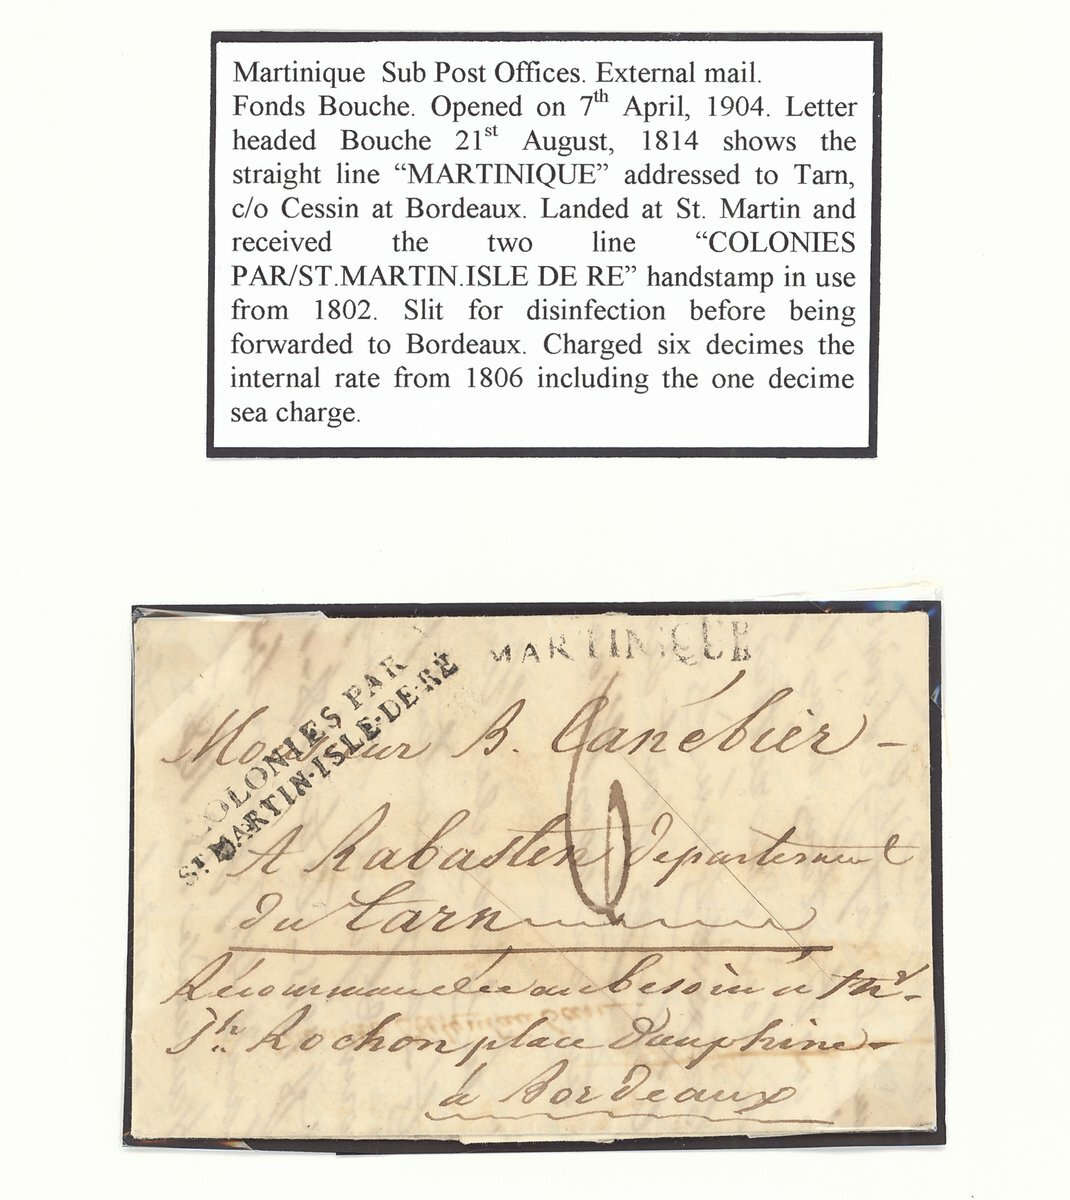 Martinique Sub Post Offices. External mail.
Fonds Bouche. Opened on 7th April, 1904. Letter
headed Bouche 21st August, 1814 shows the
straight line “MARTINIQUE” addressed to Tarn,
c/o Cessin at Bordeaux. Landed at St. Martin and
received the two line “COLONIES
PAR/ST.MARTIN.ISLE DE RE” handstamp in use
from 1802. Slit for disinfection before being
forwarded to Bordeaux. Charged six decimes the
internal rate from 1806 including the one decime
sea charge.
MARTINIQUE
COLONIES PAR
ST. MARTIN·ISLE·DE·RE
Monsieur B. Canébier
6
A Rabasten departement
du tarn
Récommandée au besoin à Mr
Jh Rochon place Dauphine
à Bordeaux